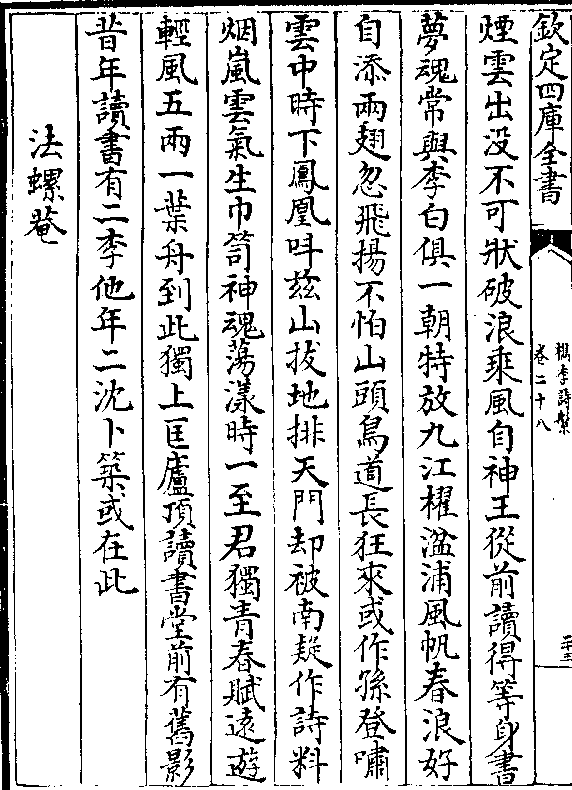 欽定四庫全書
檇李詩繫
卷二十八
二十三
煙雲出没不可狀破浪乘風自神王從前讀得等身書
夢魂常與李白俱一朝特放九江櫂湓浦風帆春浪好
自添兩翅忽飛揚不怕山頭鳥道長狂來或作孫登嘯
雲中時下鳳凰呌兹山拔地排天門却被南疑作詩料
烟嵐雲氣生巾笥神魂蕩漾時一至君獨青春賦遠遊
輕風五兩一葉舟到此獨上匡廬頂讀書堂前有舊影
昔年讀書有二李他年二沈卜築或在此
法螺菴